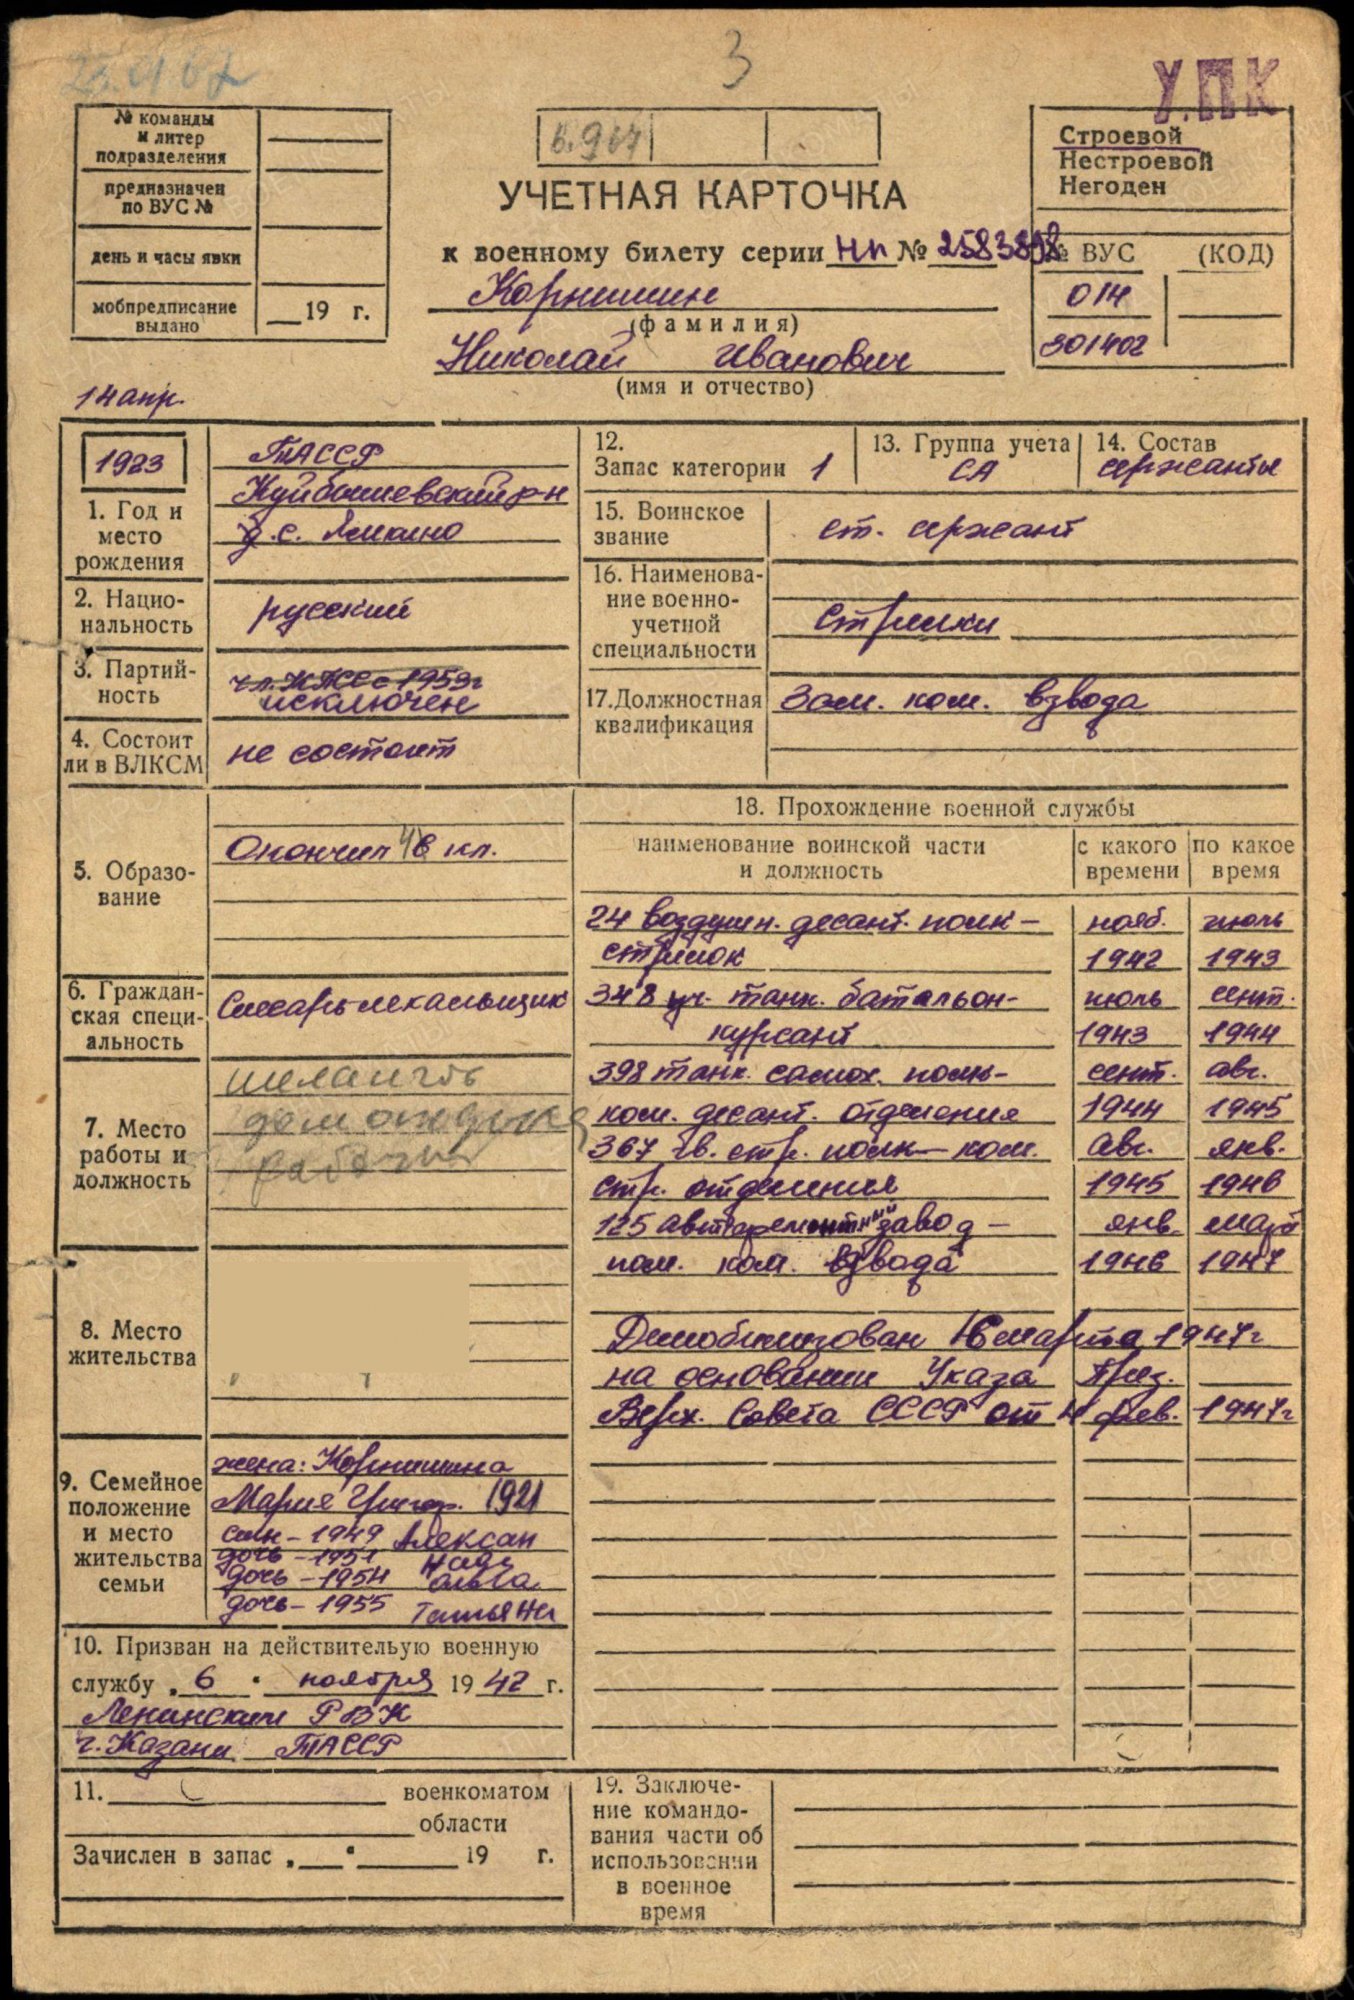 3
У.П.К
№ команды
и литер
подразделения
предназначен
по ВУС №
день и часы явки
мобпредписание
выдано
19 г.
в.967
Строевой
Нестроевой
Негоден
УЧЕТНАЯ КАРТОЧКА
к военному билету серии НП № 2583898
Корнишин
(фамилия)
Николай Иванович
(имя и отчество)
№ ВУС (КОД)
014
301402
14 апр.
1923
1. Год и
место
рождения
ТАССР
Куйбышевский р-н
с.
2. Нацио-
нальность
русский
3. Партий-
ность
чл. КПСС с 1953г
исключен
4. Состоит
ли в ВЛКСМ
не состоит
12.
Запас категории 1
13. Группа учета
СА
14. Состав
сержанты
15. Воинское
звание
ст. сержант
16. Наименова-
ние военно-
учетной
специальности
стрелки
17. Должностная
квалификация
Зам. ком. взвода
5. Образо-
вание
Окончил кл.
6. Граждан-
ская специ-
альность
Слесарь лекальщик
7. Место
работы и
должность
рабочий
8. Место
жительства
9. Семейное
положение
и место
жительства
семьи
жена: Корнишина
Мария Григор. 1921
сын – 1949 Алексан
дочь – 1951 Надя
дочь – 1954 Ольга
дочь – 1955 Татьяна
10. Призван на действительую военную
службу „6" ноября 1942 г.
Ленинским РВК
г. Казани ТАССР
11. военкоматом
области
Зачислен в запас „ " 19 г.
18. Прохождение военной службы
наименование воинской части
и должность
с какого
времени
по какое
время
24 воздушн. десант. полк – нояб. июль
стрелок 1942 1943
348 уч. танк. батальон- июль сент.
курсант 1943 1944
398 танк. самох. полк- сент. авг.
ком. десант. отделения 1944 1945
367 гв. стр. полк – ком. авг. янв.
стр. отделения 1945 1946
125 авторемонтный завод – янв. март
пом. ком. взвода 1946 1947
Демобилизован марта 1947г
на основании Указа През.
Верх. Совета СССР от 4 фев. 1947г
19. Заключе-
ние командо-
вания части об
использовании
в военное
время